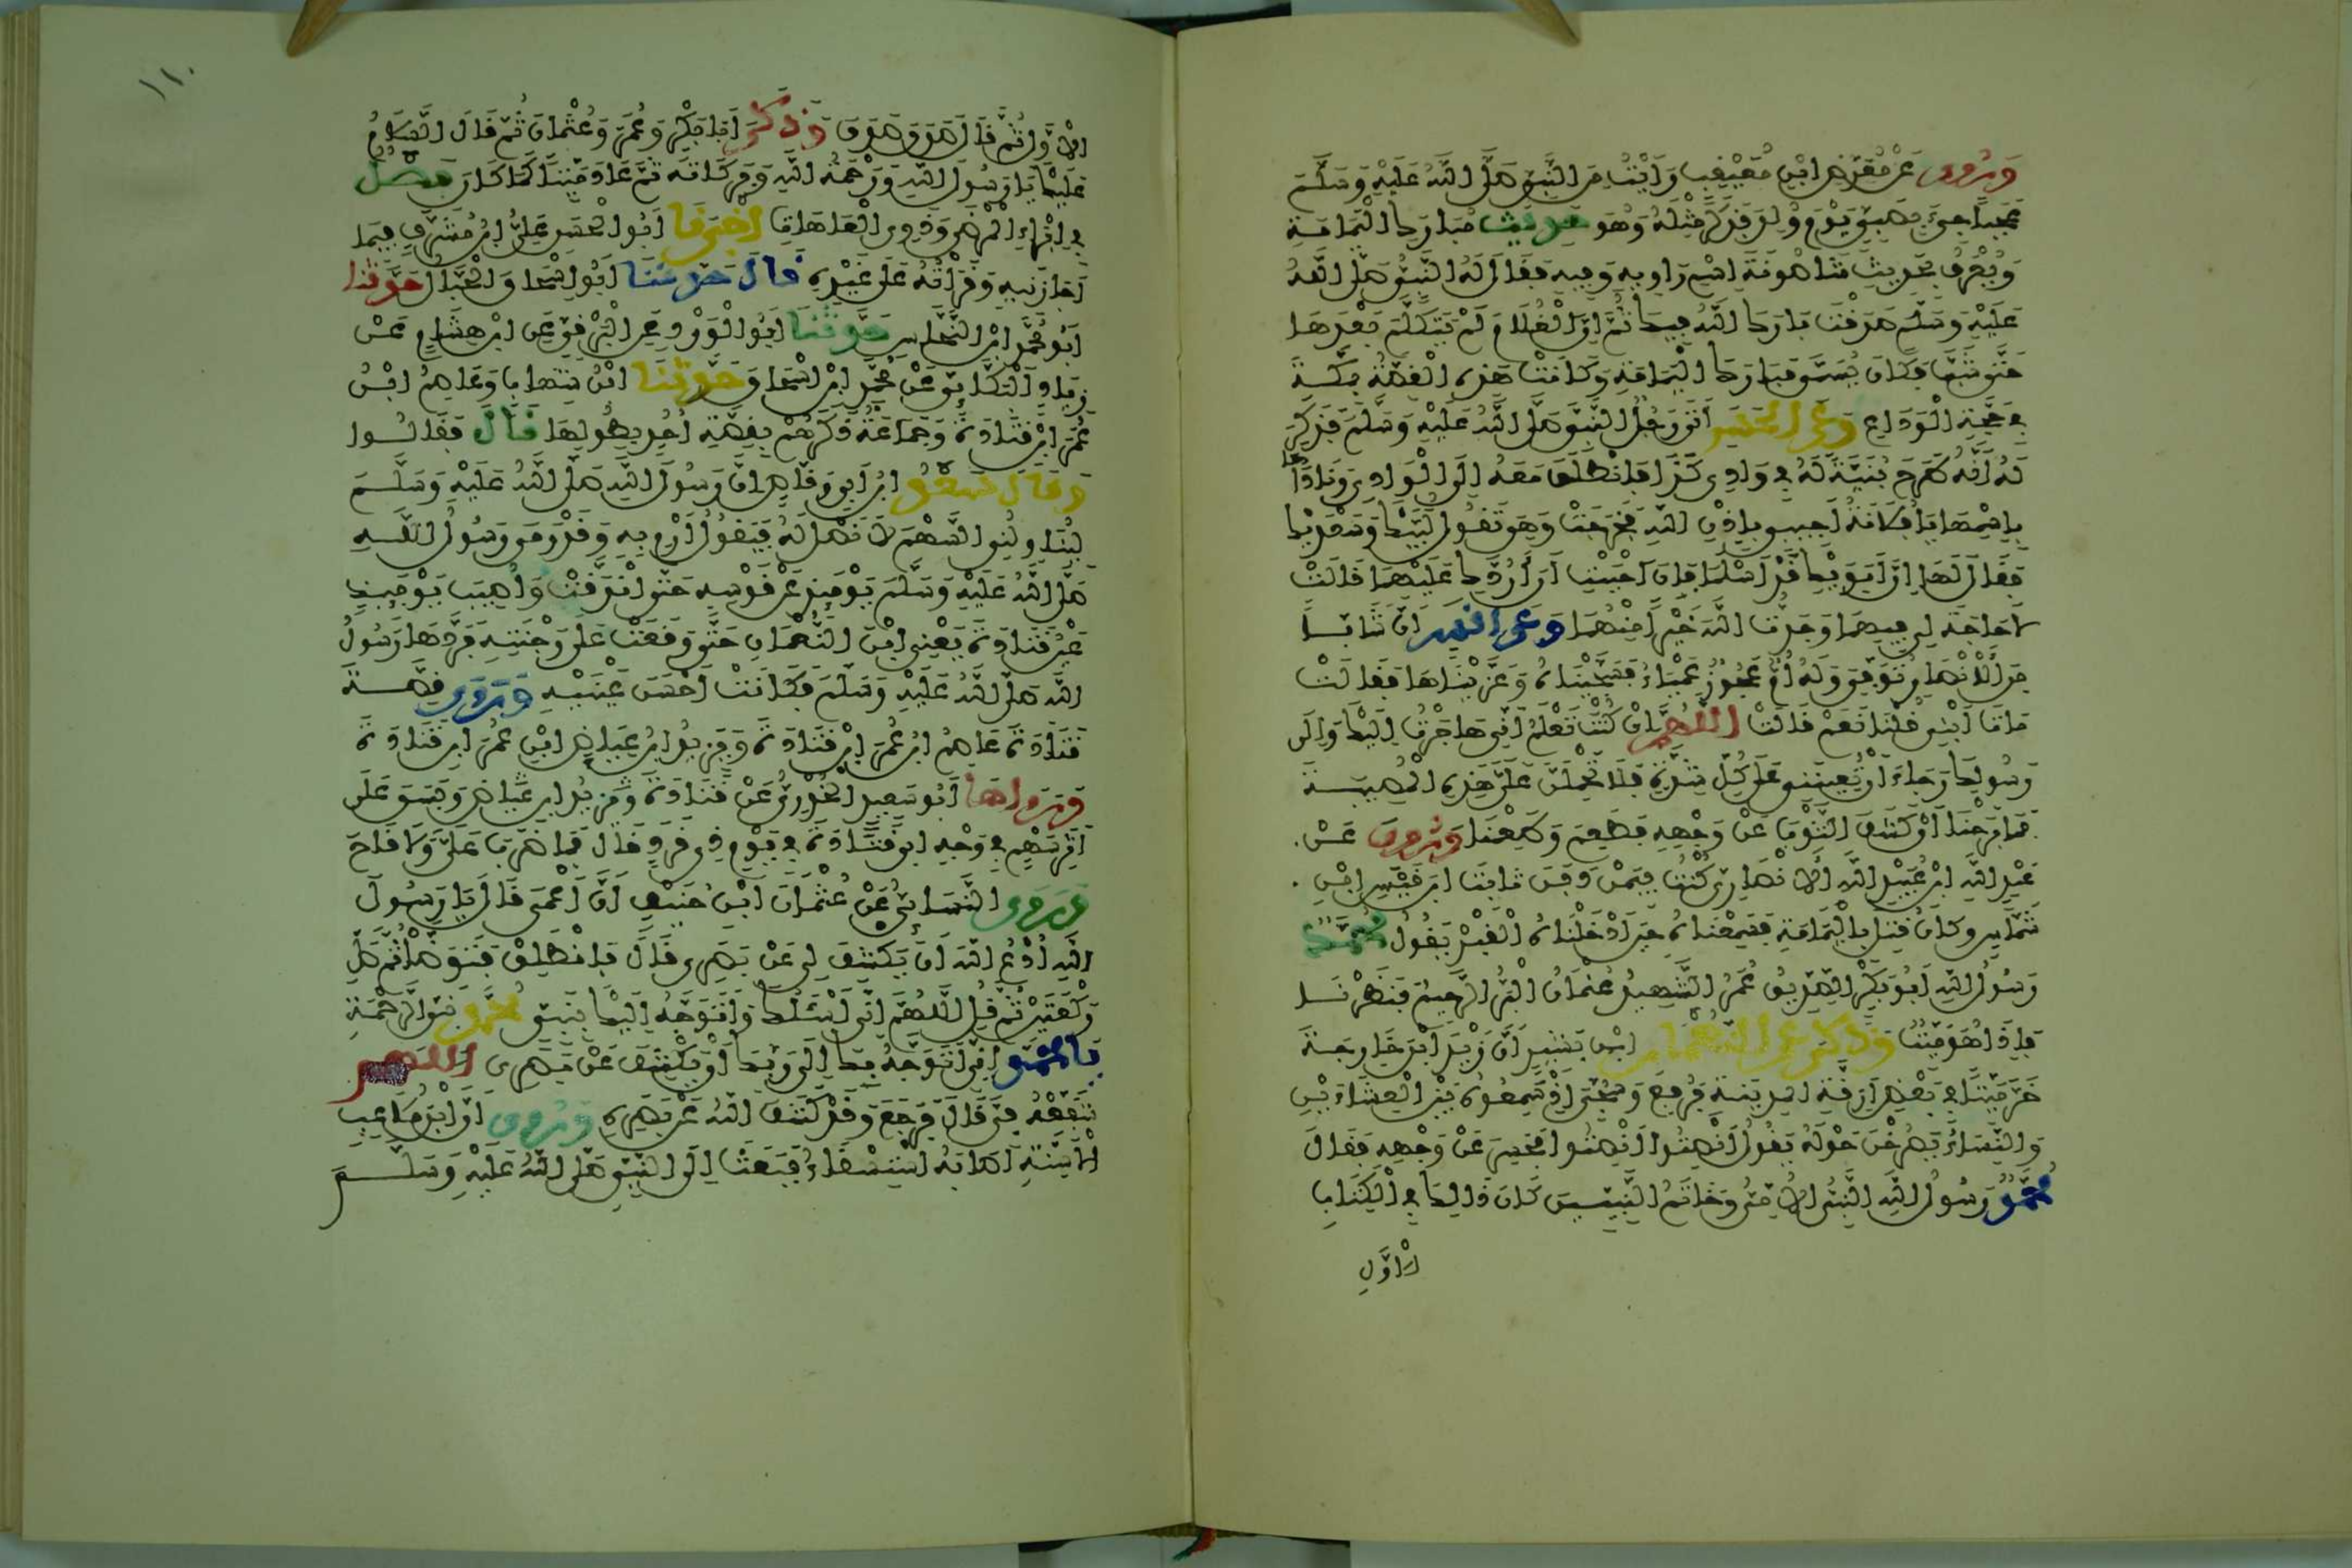 وَرُوِيَ عَنْ مُعَرِّضِ ابْنِ مُعَيْقِيبٍ رَأَيْتُ مِنَ النَّبِيِّ صَلَّى اللَّهُ عَلَيْهِ وَسَلَّمَ
عَجَباً جِيءَ بِصَبِيٍّ يَوْمَ وُلِدَ فَذَكَرَ مِثْلَهُ وَهُوَ حَدِيثُ مُبَارَكِ الْيَمَامَةِ
وَيُعْرَفُ بِحَدِيثِ شَاصُونَةَ اسْمِ رَاوِيهِ وَفِيهِ فَقَالَ لَهُ النَّبِيُّ صَلَّى اللَّهُ
عَلَيْهِ وَسَلَّمَ صَدَقْتَ بَارَكَ اللَّهُ فِيكَ ثُمَّ إِنَّ الْغُلَامَ لَمْ يَتَكَلَّمْ بَعْدَهَا
حَتَّى شَبَّ فَكَانَ يُسَمَّى مُبَارَكَ الْيَمَامَةِ وَكَانَتْ هَذِهِ الْقِصَّةُ بِمَكَّةَ
فِي حَجَّةِ الْوَدَاعِ وَعَنِ الْحَسَنِ أَتَى رَجُلٌ النَّبِيَّ صَلَّى اللَّهُ عَلَيْهِ وَسَلَّمَ فَذَكَرَ
لَهُ أَنَّهُ طَرَحَ بُنَيَّةً لَهُ فِي وَادِي كَذَا فَانْطَلَقَ مَعَهُ إِلَى الْوَادِي وَنَادَاهَا
بِاسْمِهَا يَا فُلَانَةُ أَجِيبِي بِإِذْنِ اللَّهِ فَخَرَجَتْ وَهِيَ تَقُولُ لَبَّيْكَ وَسَعْدَيْكَ
فَقَالَ لَهَا إِنَّ أَبَوَيْكِ قَدْ أَسْلَمَا فَإِنْ أَحْبَبْتِ أَنْ أَرُدَّكِ عَلَيْهِمَا قَالَتْ
لَا حَاجَةَ لِي فِيهِمَا وَجَدْتُ اللَّهَ خَيْراً مِنْهُمَا وَعَنْ أَنَسٍ أَنَّ شَابّاً
مِنَ الْأَنْصَارِ تُوُفِّيَ وَلَهُ أُمٌّ عَجُوزٌ عَمْيَاءُ فَسَجَّيْنَاهُ وَعَزَّيْنَاهَا فَقَالَتْ
مَاتَ ابْنِي قُلْنَا نَعَمْ قَالَتْ اللَّهُمَّ إِنْ كُنْتَ تَعْلَمُ أَنِّي هَاجَرْتُ إِلَيْكَ وَإِلَى
رَسُولِكَ رَجَاءَ أَنْ تُعِينَنِي عَلَى كُلِّ شِدَّةٍ فَلَا تَحْمِلَنَّ عَلَيَّ هَذِهِ الْمُصِيبَةَ
فَمَا بَرِحْنَا أَنْ كَشَفَ الثَّوْبَ عَنْ وَجْهِهِ فَطَعِمَ وَطَعِمْنَا وَرُوِيَ عَنْ
عَبْدِ اللَّهِ ابْنِ عُبَيْدِ اللَّهِ الْأَنْصَارِيِّ كُنْتُ فِيمَنْ دَفَنَ ثَابِتَ ابْنَ قَيْسِ ابْنِ
شَمَّاسٍ وَكَانَ قُتِلَ بِالْيَمَامَةِ فَسَمِعْنَاهُ حِينَ أَدْخَلْنَاهُ الْقَبْرَ يَقُولُ مُحَمَّدٌ
رَسُولُ اللَّهِ أَبُو بَكْرٍ الصِّدِّيقُ عُمَرُ الشَّهِيدُ عُثْمَانُ الْبَرُّ الرَّحِيمُ فَنَظَرْنَا
فَإِذَا هُوَ مَيِّتٌ وَذُكِرَ عَنِ النُّعْمَانِ ابْنِ بَشِيرٍ أَنَّ زَيْدَ ابْنَ خَارِجَةَ
خَرَّ مَيِّتاً فِي بَعْضِ أَزِقَّةِ الْمَدِينَةِ فَرُفِعَ وَسُجِّيَ إِذْ سَمِعُوهُ بَيْنَ الْعِشَاءَيْنِ
وَالنِّسَاءُ يَصْرُخْنَ حَوْلَهُ يَقُولُ أَنْصِتُوا أَنْصِتُوا فَحُسِرَ عَنْ وَجْهِهِ فَقَالَ
مُحَمَّدٌ رَسُولُ اللَّهِ النَّبِيُّ الْأُمِّيُّ وَخَاتَمُ النَّبِيئِينَ كَانَ ذَالِكَ فِي الْكِتَابِ
الْأَوَّلِ
١١٠
الْأَوَّلِ ثُمَّ قَالَ صَدَقَ صَدَقَ وَذَكَرَ أَبَا بَكْرٍ وَعُمَرَ وَعُثْمَانَ ثُمَّ قَالَ السَّلَامُ
عَلَيْكَ يَا رَسُولَ اللَّهِ وَرَحْمَةُ اللَّهِ وَبَرَكَاتُهُ ثُمَّ عَادَ مَيِّتاً كَمَا كَانَ فَصْلٌ
فِي إِبْرَاءِ الْمَرْضَى وَذَوِي الْعَاهَاتِ أَخْبَرَنَا أَبُو الْحَسَنِ عَلِيُّ ابْنُ مُشَرَّفٍ فِيمَا
أَجَازَنِيهِ وَقَرَأْتُهُ عَلَى غَيْرِهِ قَالَ حَدَّثَنَا أَبُو إِسْحَاقَ الْحَبَّالُ حَدَّثَنَا
أَبُو مُحَمَّدٍ ابْنُ النَّحَّاسِ حَدَّثَنَا أَبُو الْوَرْدِ عَنِ الْبَرْقِيِّ عَنِ ابْنِ هِشَامٍ عَنْ
زِيَادٍ الْبَكَّائِيِّ عَنْ مُحَمَّدِ ابْنِ إِسْحَاقَ حَدَّثَنَا ابْنُ شِهَابٍ وَعَاصِمُ ابْنُ
عُمَرَ ابْنِ قَتَادَةَ وَجَمَاعَةٌ ذَكَرَهُمْ بِقِصَّةِ أُحُدٍ بِطُولِهَا قَالَ فَقَالُوا
وَقَالَ سَعْدُ ابْنُ أَبِي وَقَّاصٍ إِنَّ رَسُولَ اللَّهِ صَلَّى اللَّهُ عَلَيْهِ وَسَلَّمَ
لَيُنَاوِلُنِي السَّهْمَ لَا نَصْلَ لَهُ فَيَقُولُ ارْمِ بِهِ وَقَدْ رَمَى رَسُولُ اللَّهِ
صَلَّى اللَّهُ عَلَيْهِ وَسَلَّمَ يَوْمَئِذٍ عَنْ قَوْسِهِ حَتَّى انْدَقَّتْ وَأُصِيبَ يَوْمَئِذٍ
عَيْنُ قَتَادَةَ يَعْنِي ابْنَ النُّعْمَانِ حَتَّى وَقَعَتْ عَلَى وَجْنَتِهِ فَرَدَّهَا رَسُولُ
اللَّهِ صَلَّى اللَّهُ عَلَيْهِ وَسَلَّمَ فَكَانَتْ أَحْسَنَ عَيْنَيْهِ وَرَوَى قِصَّةَ
قَتَادَةَ عَاصِمُ ابْنُ عُمَرَ ابْنِ قَتَادَةَ وَيَزِيدُ ابْنُ عِيَاضِ ابْنِ عُمَرَ ابْنِ قَتَادَةَ
وَرَوَاهَا أَبُو سَعِيدٍ الْخُدْرِيُّ عَنْ قَتَادَةَ وَبَصَقَ عَلَى
أَثَرِ سَهْمٍ فِي وَجْهِ أَبِي قَتَادَةَ فِي يَوْمِ ذِي قَرَدٍ قَالَ فَمَا ضَرَبَ عَلَيَّ وَلَا قَاحَ
وَرَوَى النَّسَائِيُّ عَنْ عُثْمَانَ ابْنِ حُنَيْفٍ أَنَّ أَعْمَى قَالَ يَا رَسُولَ
اللَّهِ ادْعُ اللَّهَ أَنْ يَكْشِفَ لِي عَنْ بَصَرِي قَالَ فَانْطَلِقْ فَتَوَضَّأْ ثُمَّ صَلِّ
رَكْعَتَيْنِ ثُمَّ قُلْ اللَّهُمَّ إِنِّي أَسْئَلُكَ وَأَتَوَجَّهُ إِلَيْكَ بِنَبِيِّ مُحَمَّدٍ نَبِيِّ الرَّحْمَةِ
يَا مُحَمَّدُ إِنِّي أَتَوَجَّهُ بِكَ إِلَى رَبِّكَ أَنْ يَكْشِفَ عَنْ بَصَرِي اللَّهُمَّ
شَفِّعْهُ فِيَّ قَالَ فَرَجَعَ وَقَدْ كَشَفَ اللَّهُ عَنْ بَصَرِهِ وَرُوِيَ أَنَّ ابْنَ مُلَاعِبِ
الْأَسِنَّةِ أَصَابَهُ اسْتِسْقَاءٌ فَبَعَثَ إِلَى النَّبِيِّ صَلَّى اللَّهُ عَلَيْهِ وَسَلَّمَ